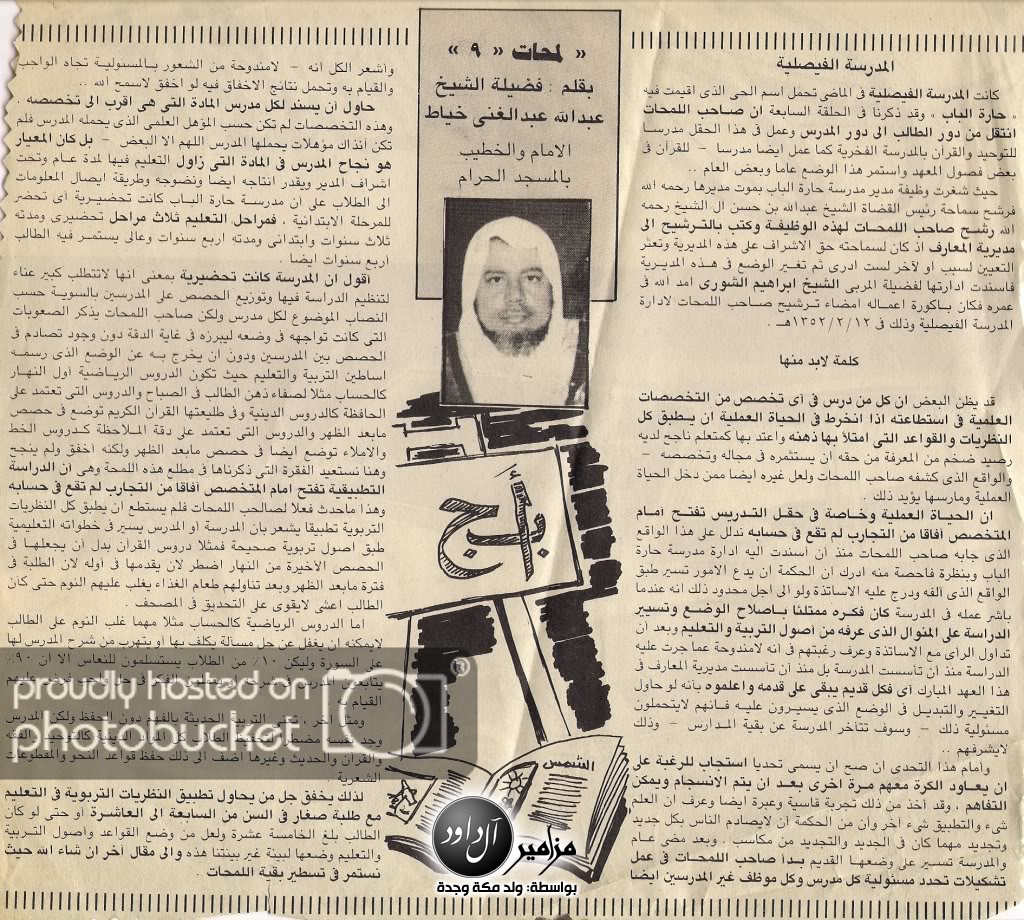 « لمحات « ٩ »
بقلم : فضيلة الشيخ
عبدالله عبدالغنى خياط
الامام والخطيب
بالمسجد الحرام
المدرسة الفيصلية
كانت المدرسة الفيصلية فى الماضى تحمل اسم الحى الذى اقيمت فيه
« حارة الباب » وقد ذكرنا فى الحلقة السابعة ان صاحب اللمحات
انتقل من دور الطالب الى دور المدرس وعمل فى هذا الحقل مدرسا
للتوحيد والقرآن بالمدرسة الفخرية كما عمل ايضا مدرسا – للقرآن فى
بعض فصول المعهد واستمر هذا الوضع عاما وبعض العام ..
حيث شغرت وظيفة مدير مدرسة حارة الباب بموت مديرها رحمه الله
فرشح سماحة رئيس القضاة الشيخ عبدالله بن حسن ال الشيخ رحمه
الله رشح صاحب اللمحات لهذه الوظيفة وكتب بالترشيح الى
مديرية المعارف اذ كان لسماحته حق الاشراف على هذه المديرية وتعثر
التعيين لسبب او لآخر لست ادرى ثم تغير الوضع فى هذه المديرية
فاسندت ادارتها لفضيلة المربى الشيخ ابراهيم الشورى امد الله فى
عمره فكان باكورة اعماله امضاء ترشيح صاحب اللمحات لادارة
المدرسة الفيصلية وذلك فى ١٣٥٢/٢/١٢هـ .
كلمة لابد منها
قد يظن البعض ان كل من درس فى أى تخصص من التخصصات
العلمية فى استطاعته اذا انخرط فى الحياة العملية ان يطبق كل
النظريات والقواعد التى امتلأ بها ذهنه واعتد بها كمتعلم ناجح لديه
رصيد ضخم من المعرفة من حقه ان يستثمره فى مجاله وتخصصه –
والواقع الذى كشفه صاحب اللمحات ولعل غيره ايضا ممن دخل الحياة
العملية ومارسها يؤيد ذلك .
ان الحياة العملية وخاصة فى حقل التدريس تفتح أمام
المتخصص أفاقا من التجارب لم تقع فى حسابه ندلل على هذا الواقع
الذى جابه صاحب اللمحات منذ أن أسندت اليه ادارة مدرسة حارة
الباب وبنظرة فاحصة منه ادرك ان الحكمة ان يدع الامور تسير طبق
الواقع الذى ألفه ودرج عليه الاساتذة ولو الى اجل محدود ذلك انه عندما
باشر عمله فى المدرسة كان فكره ممتلئا باصلاح الوضع وتسيير
الدراسة على المنوال الذى عرفه من أصول التربية والتعليم وبعد أن
تداول الرأى مع الاساتذة وعرف رغبتهم فى انه لامندوحة عما جرت عليه
الدراسة منذ ان تأسست المدرسة بل منذ أن تأسست مديرية المعارف فى
هذا العهد المبارك أى فكل قديم يبقى على قدمه واعلموه بأنه لو حاول
التغيير والتبديل فى الوضع الذى يسيرون عليه فانهم لايتحملون
مسئولية ذلك – وسوف تتأخر المدرسة عن بقية المدارس – وذلك
لايشرفهم ..
وأمام هذا التحدى ان صح ان يسمى تحديا استجاب للرغبة على
ان يعاود الكرة معهم مرة اخرى بعد ان يتم الانسجام ويمكن
التفاهم ، وقد اخذ من ذلك تجربة قاسية وعبرة ايضا وعرف ان العلم
شىء والتطبيق شىء آخر وأن من الحكمة أن لايصادم الناس بكل جديد
وتجديد مهما كان فى الجديد والتجديد من مكاسب . وبعد مضى عام
والمدرسة تسير على وضعها القديم بدأ صاحب اللمحات فى عمل
تشكيلات تحدد مسئولية كل مدرس وكل موظف غير المدرسين ايضا
وأشعر الكل أنه – لامندوحة من الشعور بالمسئولية تجاه الواجب
والقيام به وتحمل نتائج الاخفاق فيه لو اخفق لاسمح الله ..
حاول ان يسند لكل مدرس المادة التى هى اقرب الى تخصصه .
وهذه التخصصات لم تكن حسب المؤهل العلمى الذى يحمله المدرس فلم
تكن آنذاك مؤهلات يحملها المدرس اللهم الا البعض – بل كان المعيار
هو نجاح المدرس فى المادة التى زاول التعليم فيها لمدة عام وتحت
اشراف المدير ويقدر انتاجه ايضا ونضوجه وطريقة ايصال المعلومات
الى الطلاب على ان مدرسة حارة الباب كانت تحضيرية أى تحضر
للمرحلة الابتدائية ، فمراحل التعليم ثلاث مراحل تحضيرى ومدته
ثلاث سنوات وابتدائى ومدته اربع سنوات وعالى يستمر فيه الطالب
أربع سنوات ايضا .
اقول ان المدرسة كانت تحضيرية بمعنى انها لاتتطلب كبير عناء
لتنظيم الدراسة فيها وتوزيع الحصص على المدرسين بالسوية حسب
النصاب الموضوع لكل مدرس ولكن صاحب اللمحات يذكر الصعوبات
التى كانت تواجهه فى وضعه ليبرزه فى غاية الدقة دون وجود تصادم فى
الحصص بين المدرسين ودون ان يخرج به عن الوضع الذى رسمه
اساطين التربية والتعليم حيث تكون الدروس الرياضية اول النهار
كالحساب مثلا لصفاء ذهن الطالب فى الصباح والدروس التى تعتمد على
الحافظة كالدروس الدينية وفى طليعتها القرآن الكريم توضع فى حصص
مابعد الظهر والدروس التى تعتمد على دقة الملاحظة كدروس الخط
والاملاء توضع ايضا فى حصص مابعد الظهر ولكنه أخفق ولم ينجح
وهنا نستعيد الفقرة التى ذكرناها فى مطلع هذه اللمحة وهى ان الدراسة
التطبيقية تفتح امام المتخصص أفاقا من التجارب لم تقع فى حسابه
وهذا ماحدث فعلا لصاحب اللمحات فلم يستطع ان يطبق كل النظريات
التربوية تطبيقا يشعر بان المدرسة او المدرس يسير فى خطواته التعليمية
طبق اصول تربوية صحيحة فمثلا دروس القرآن بدل ان يجعلها فى
الحصص الاخيرة من النهار اضطر لان يقدمها فى أوله لان الطلبة فى
فترة مابعد الظهر وبعد تناولهم طعام الغذاء يغلب عليهم النوم حتى كأن
الطالب اعشى لايقوى على التحديق فى المصحف .
اما الدروس الرياضية كالحساب مثلا مهما غلب النوم على الطالب
لايمكنه ان يغفل عن حل مسألة يكلف بها أو يتهرب من شرح المدرس لها
على السبورة وليكن ١٠٪ من الطلاب يستسلمون للنعاس الا ان ٩٠٪
القيام به
ومثل آخر
الشعرية .
لذلك يخفق جل من يحاول تطبيق النظريات التربوية فى التعليم
مع طلبة صغار فى السن من السابعة الى العاشرة او حتى لو كان
الطالب بلغ الخامسة عشرة ولعل من وضع القواعد وأصول التربية
والتعليم وضعها لبيئة غير بيئتنا هذه والى مقال آخر ان شاء الله حيث
نستمر فى تسطير بقية اللمحات .
الشمس
proudly hosted on
photobucket
مزامير آل داود
بواسطة: ولد مكة وجدة